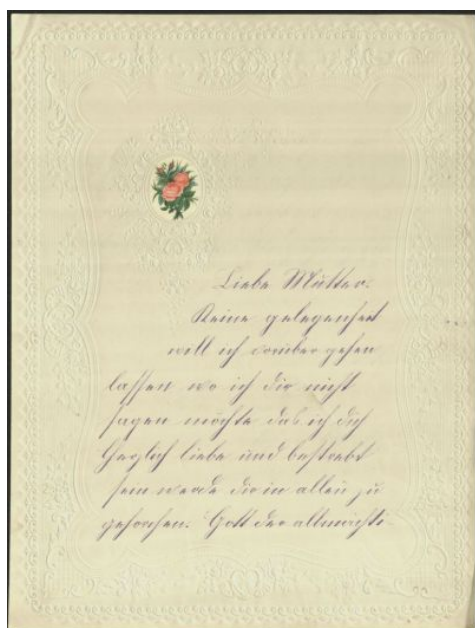 Liebe Mutter.
Keine gelegenheit
will ich vorüber gehen
lassen wo ich dir nicht
sagen möchte das ich dich
herzlich liebe und bestrebt
sein werde dir in allen zu
gehorchen. Gott der allmächti-